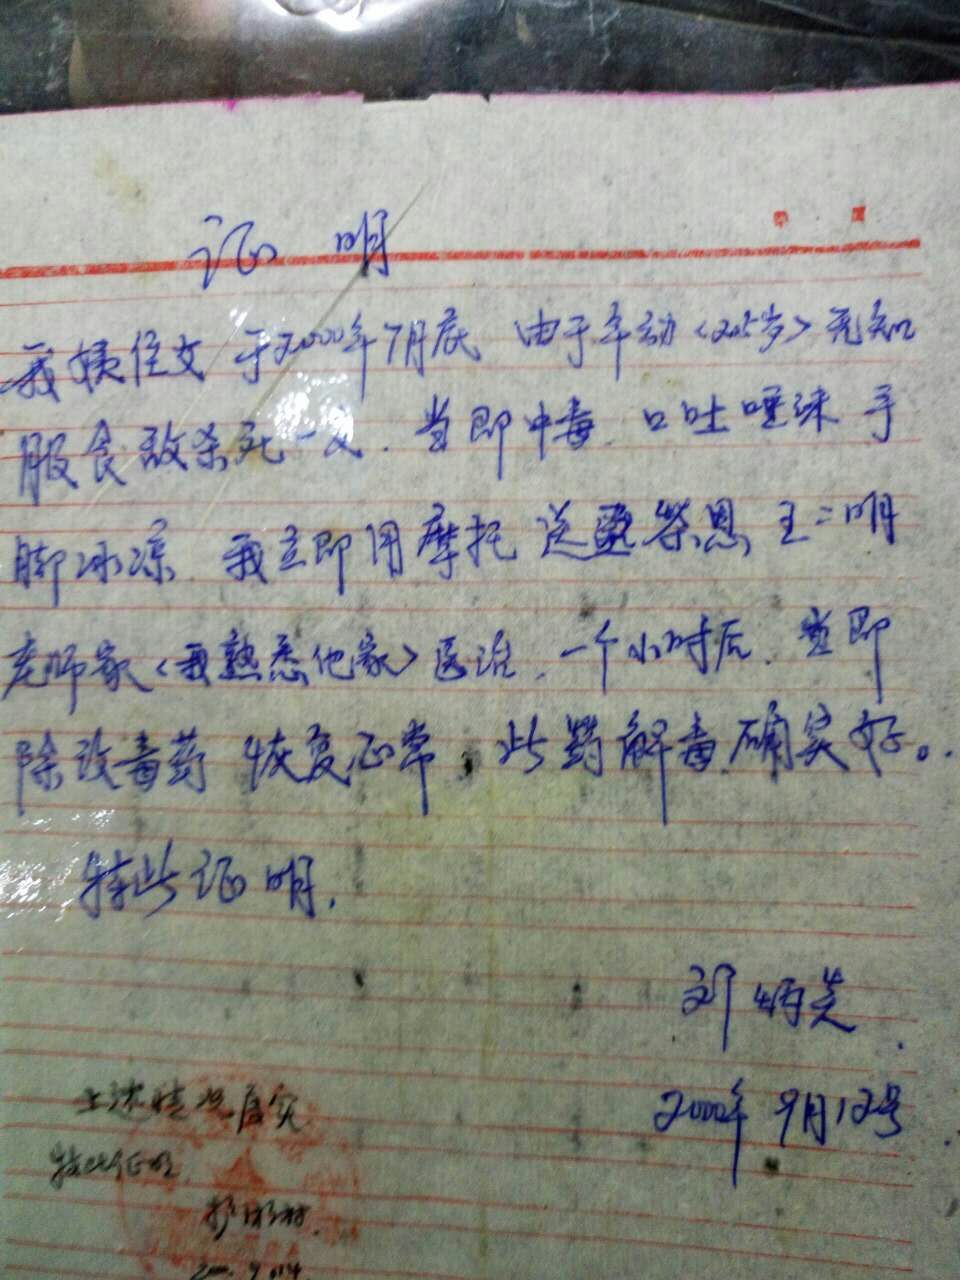 证明
我姨侄文 于2000年7月底 由于年幼<2.5岁>无知
服食敌杀死一支.当即中毒.口吐唾沫 手
脚冰凉.我立即用摩托 送 荣恩 王二明
老师家<我熟悉他家>医治.一个小时后.当即
除改毒药 恢复正常.此药解毒.确实好。
特此证明.
邓炳芝.
2000年9月12号.
上述情况属实
特此证明.